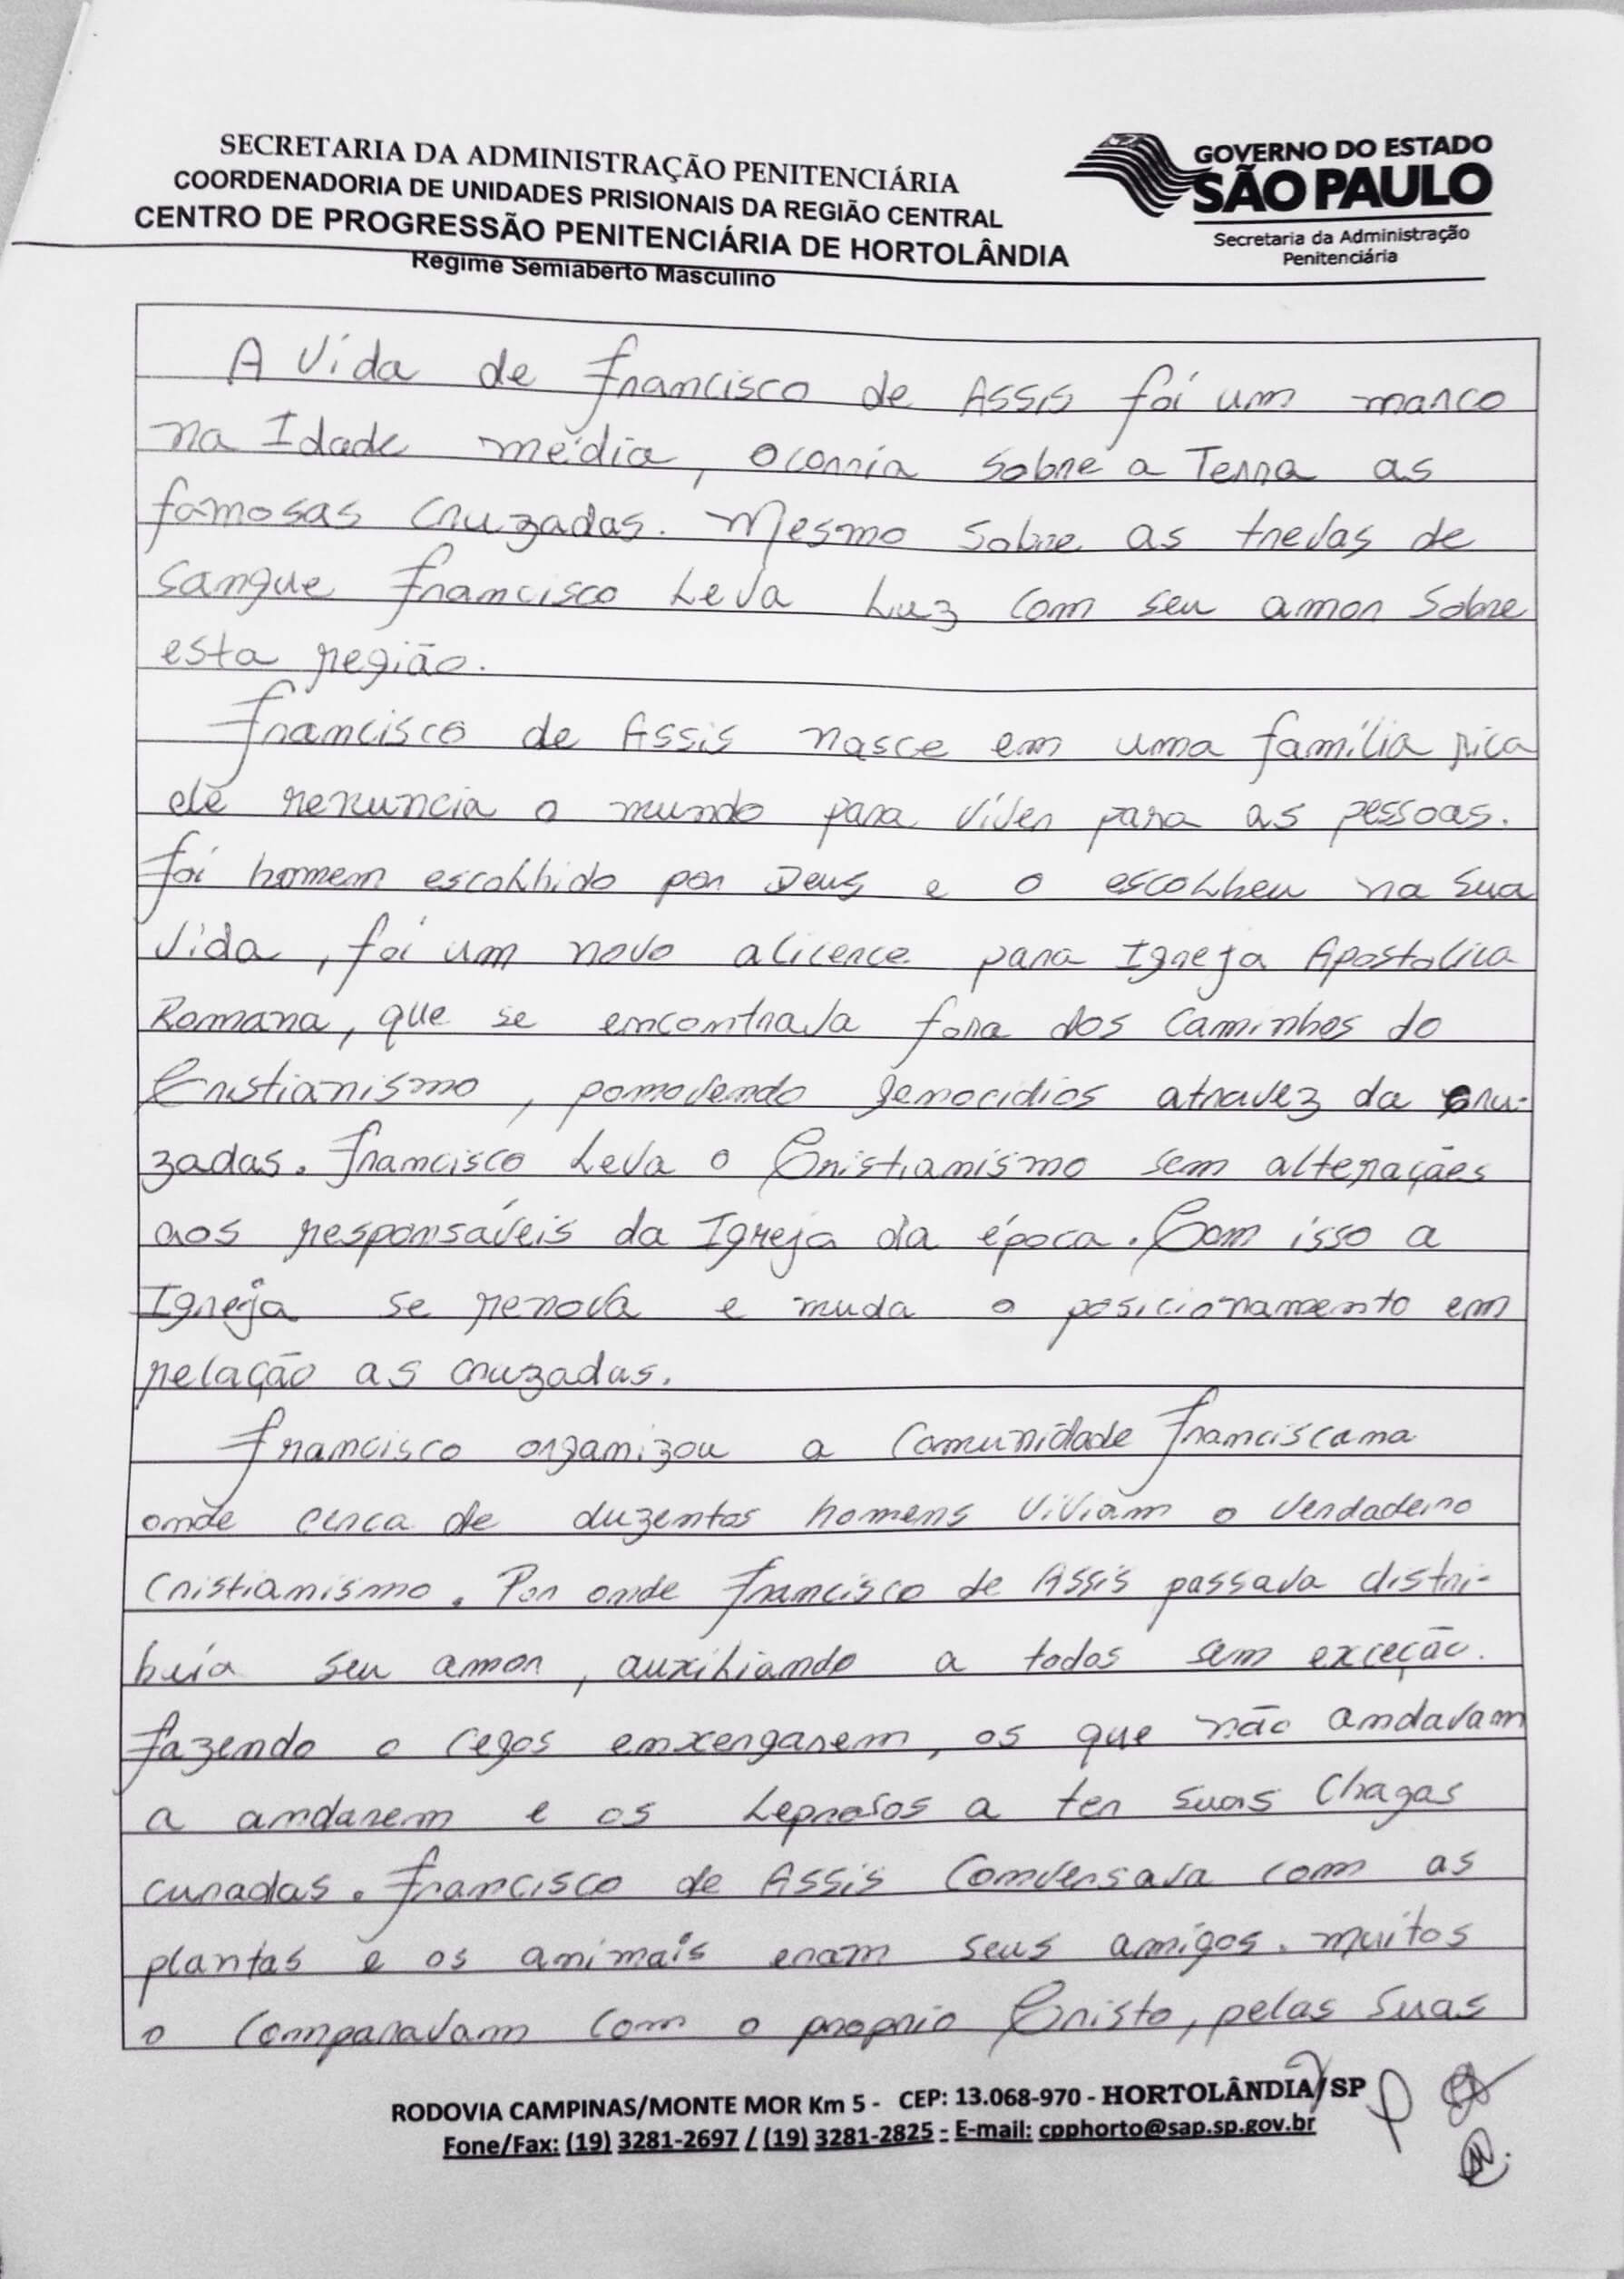 SECRETARIA DA ADMINISTRAÇÃO PENITENCIÁRIA
COORDENADORIA DE UNIDADES PRISIONAIS DA REGIÃO CENTRAL
CENTRO DE PROGRESSÃO PENITENCIÁRIA DE HORTOLÂNDIA
Regime Semiaberto Masculino
GOVERNO DO ESTADO
SÃO PAULO
Secretaria da Administração
Penitenciária
A vida de Francisco de Assis foi um marco
na Idade média, ocorria sobre a Terra as
famosas cruzadas. Mesmo sobre as trevas de
sangue Francisco Leva Luz com seu amor sobre
esta região.
Francisco de Assis nasce em uma família rica
ele renuncia o mundo para viver para as pessoas.
foi homem escolhido por Deus e o escolheu na sua
vida, foi um novo alicerce para Igreja Apostolica
Romana, que se encontrava fora dos caminhos do
Cristianismo, pomovendo genocidios atravez da cru-
zadas. Francisco Leva o Cristianismo sem alterações
aos responsáveis da Igreja da época. Com isso a
Igreja se renova e muda o posicionamento em
relação as cruzadas.
Francisco organizou a comunidade franciscana
onde cerca de duzentos homens viviam o verdadeiro
cristianismo. Por onde Francisco de Assis passava distri-
buia seu amor, auxiliando a todos sem exceção.
fazendo o cegos enxergarem, os que não andavam
a andarem e os Leprosos a ter suas chagas
curadas. Francisco de Assis conversava com as
plantas e os animais eram seus amigos. muitos
o comparavam com o proprio Cristo, pelas suas
RODOVIA CAMPINAS/MONTE MOR Km 5 - CEP: 13.068-970 - HORTOLÂNDIA/SP
Fone/Fax: (19) 3281-2697 / (19) 3281-2825 - E-mail: cpphorto@sap.sp.gov.br